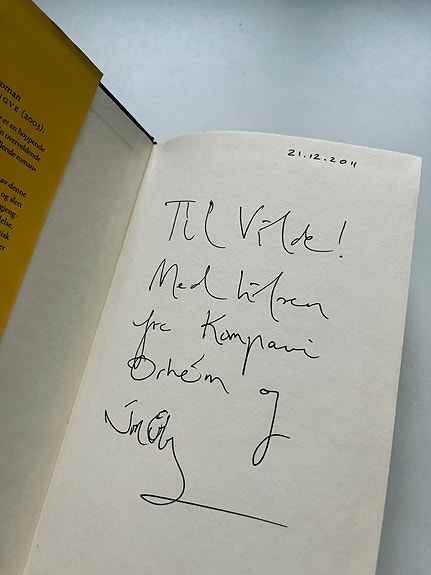 roman
GVE (2003):
e er en hoppende
n overveldende
llende roman»
av denne
og slett
gjeng-
delse.
tisk
er
21.12.2011
Til Vilde!
Med hilsen
fra Kompani
Orheim og